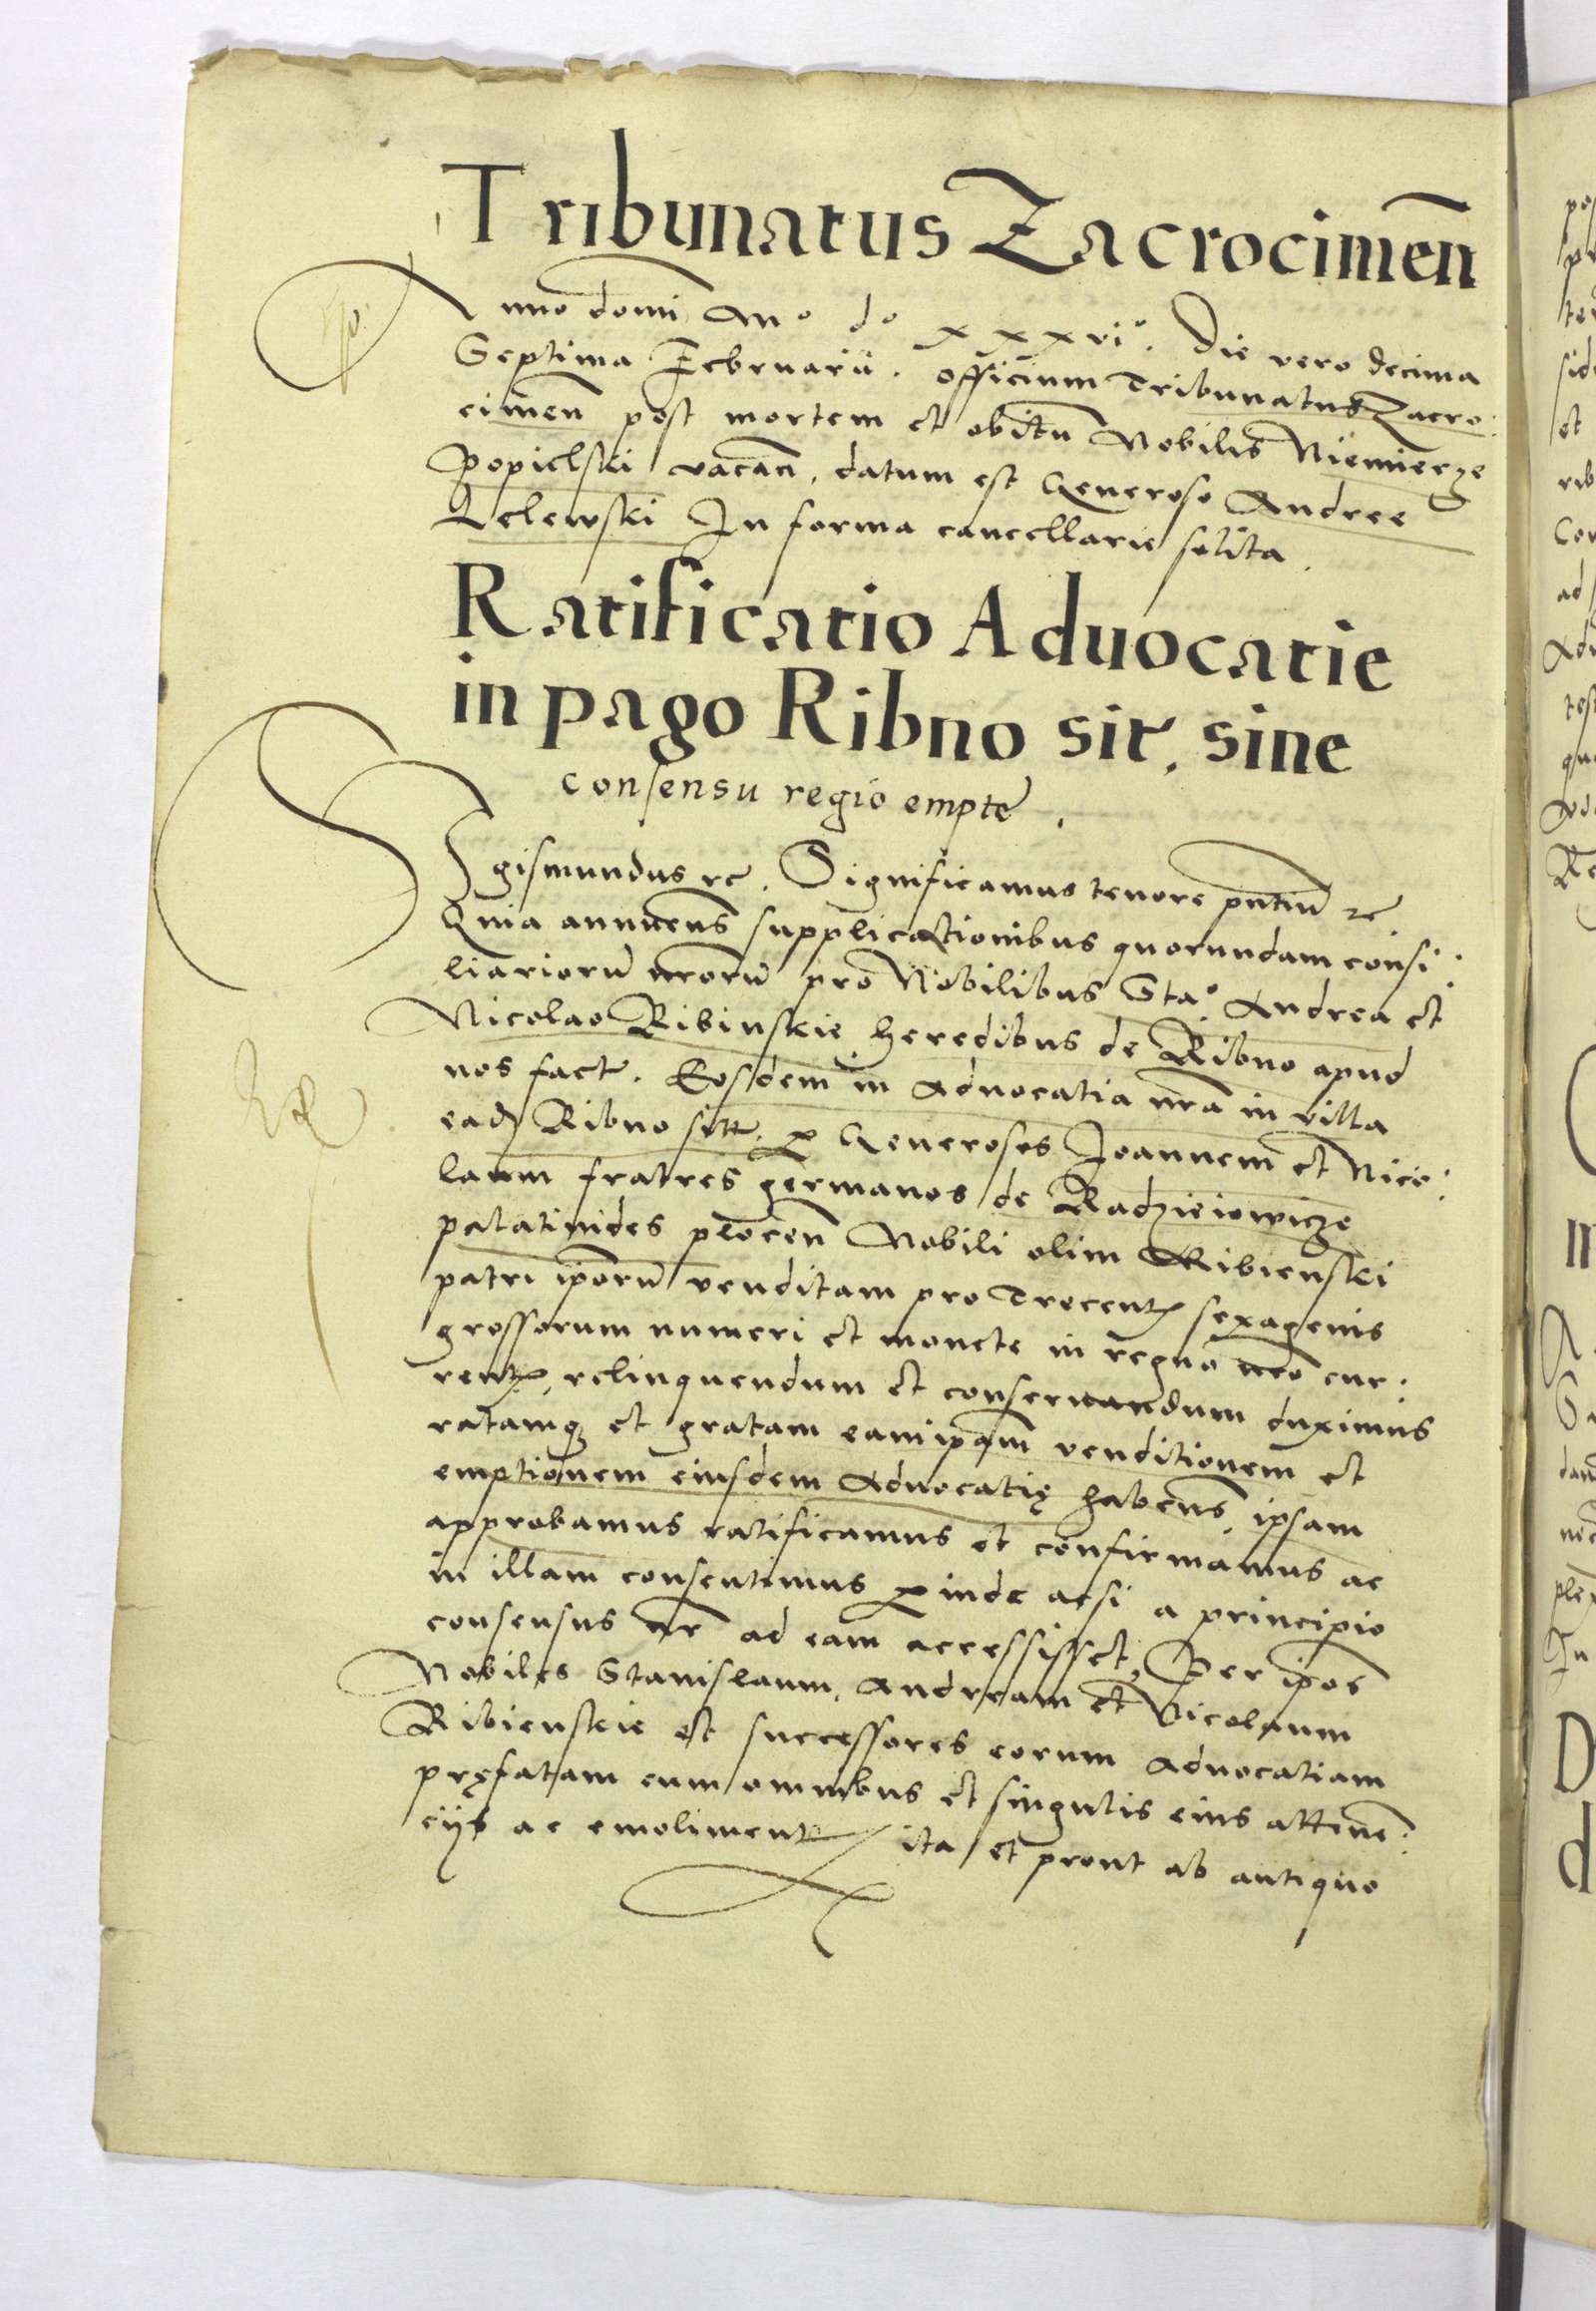 Tribunatus Zacrocimen̄
Anno domi͂ Mº dº xxxviº. Die vero decima
Septima Februarii. officium Tribunatus Zacro:
cimen̄ post mortem et obitu͂ Nobilis Niemierze
Popielski vacan̄. datum est Generoso Andree
Lelewski In forma cancellarie solita.
Ratificatio Aduocatie
in pago Ribno sit. sine
consensu regio empte.
Sigismundus rc̄. Significamus tenore pn̄tiu͂ rc̄
Quia annuen̄s supplicationibus quorundam consi:
liarioru͂ nr̄oru͂ pro Nobilibus Staº. Andrea et
Nicolao Ribinskie heredibus de Ribno apud
nos fact. Eosdem in Aduocatia nr̄a in villa
ead Ribno sitt. per Generosos Joannem et Nico:
laum fratres germanos de Radzieiowicze
palatinides plocen̄ Nobili olim Ribienski
patri ip̄oru͂ venditam pro Trecent sexagenis
grossorum numeri et monete in regno nr̄o cur:
rent, relinquendum et conseruandum duximus
ratamq et gratam eam ip̄am venditionem et
emptionem eiusdem Aduocatię haben̄s, ipsam
approbamus ratificamus et confirmamus ac
in illam consentimus perinde acsi a principio
consensus nr̄ ad eam accessisset, Per ip̄os
Nobiles Stanislaum, Andream et Nicolaum
Ribienskie et successores eorum Aduocatiam
pręfatam cum omnibus et singulis eius attinen:
ciis ac emoliment ita et prout ab antiquo